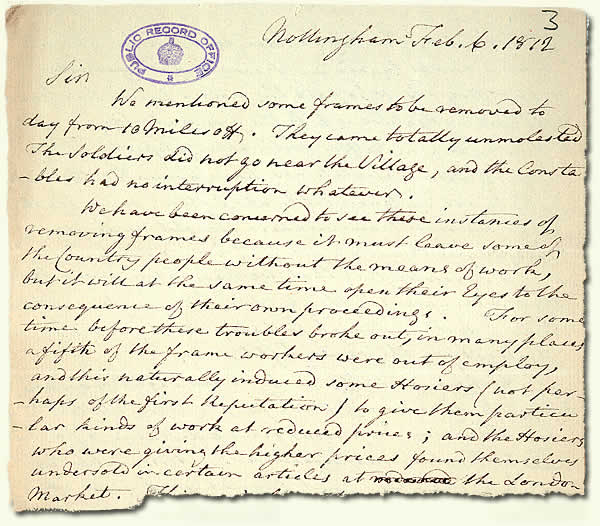 3
PUBLIC RECORD OFFICE
Nottingham Feb. 6. 1812
Sir
We mentioned some frames to be removed to
day from 10 Miles off. They came totally unmolested
The Soldiers did not go near the Village, and the Consta
-bles had no interruption whatever.
We have been concerned to see these instances of
removing frames because it must leave some of
the Country people without the means of work,
but it will at the same time open their Eyes to the
consequence of their own proceedings. For some
time before these troubles broke out, in many places
a fifth of the frame workers were out of employ,
and this naturally induced some Hosiers (not per-
-haps of the first Reputation) to give them particu
-lar kinds of work at reduced prices; and the Hosiers
who were giving the higher prices found themselves
undersold in certain articles at the London
Market.